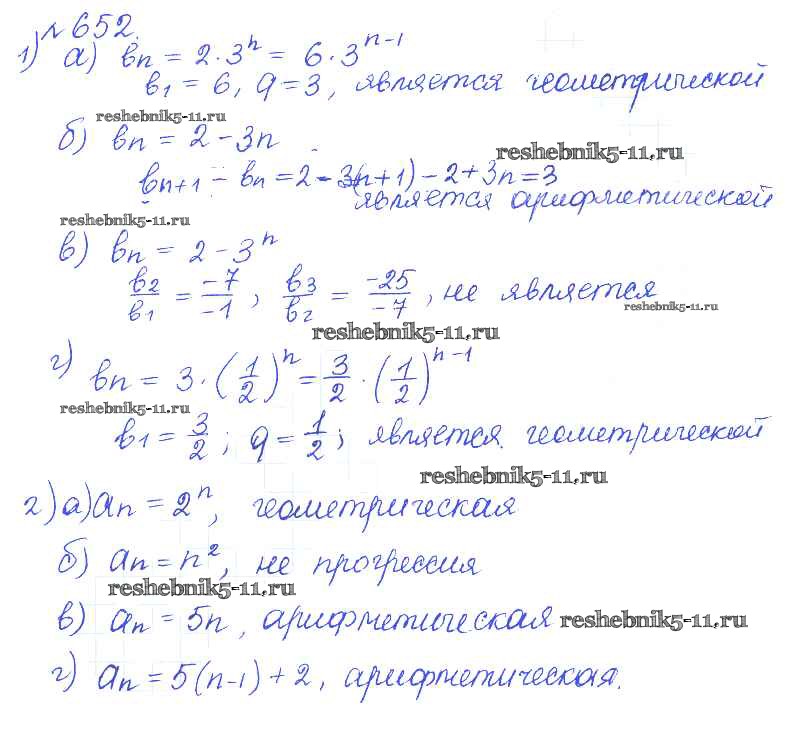 №652.
1) а) вn = 2·3^n = 6·3^(n-1)
в1 = 6, q = 3, является геометрической
reshebnik5-11.ru
б) вn = 2 - 3n
reshebnik5-11.ru
вn+1 - вn = 2 - 3(n+1) - 2 + 3n = 3
является арифметической
reshebnik5-11.ru
в) вn = 2 - 3^n
в2/в1 = -7/-1, в3/в2 = -25/-7, не является
reshebnik5-11.ru
reshebnik5-11.ru
г) вn = 3·(1/2)^n = 3/2·(1/2)^(n-1)
reshebnik5-11.ru
в1 = 3/2; q = 1/2; является геометрической
reshebnik5-11.ru
2) а) an = 2^n, геометрическая
б) an = n², не прогрессия
reshebnik5-11.ru
в) an = 5n, арифметическая reshebnik5-11.ru
г) an = 5(n-1) + 2, арифметическая.